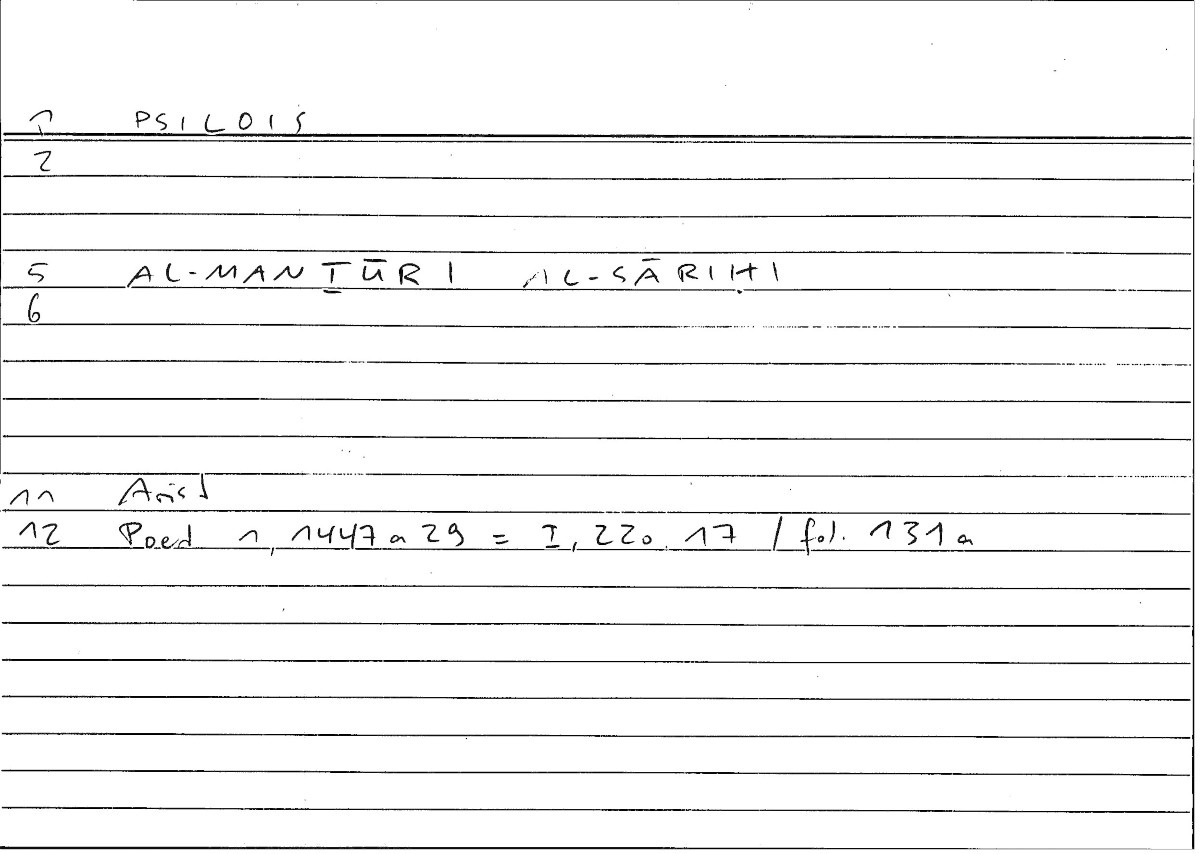 1 PSILOIS
2
5 AL-MANṮŪRI AL-SĀRIḤI
6
11 Arist
12 Poet 1, 1447a29 = I, 220.17 / fol. 131a